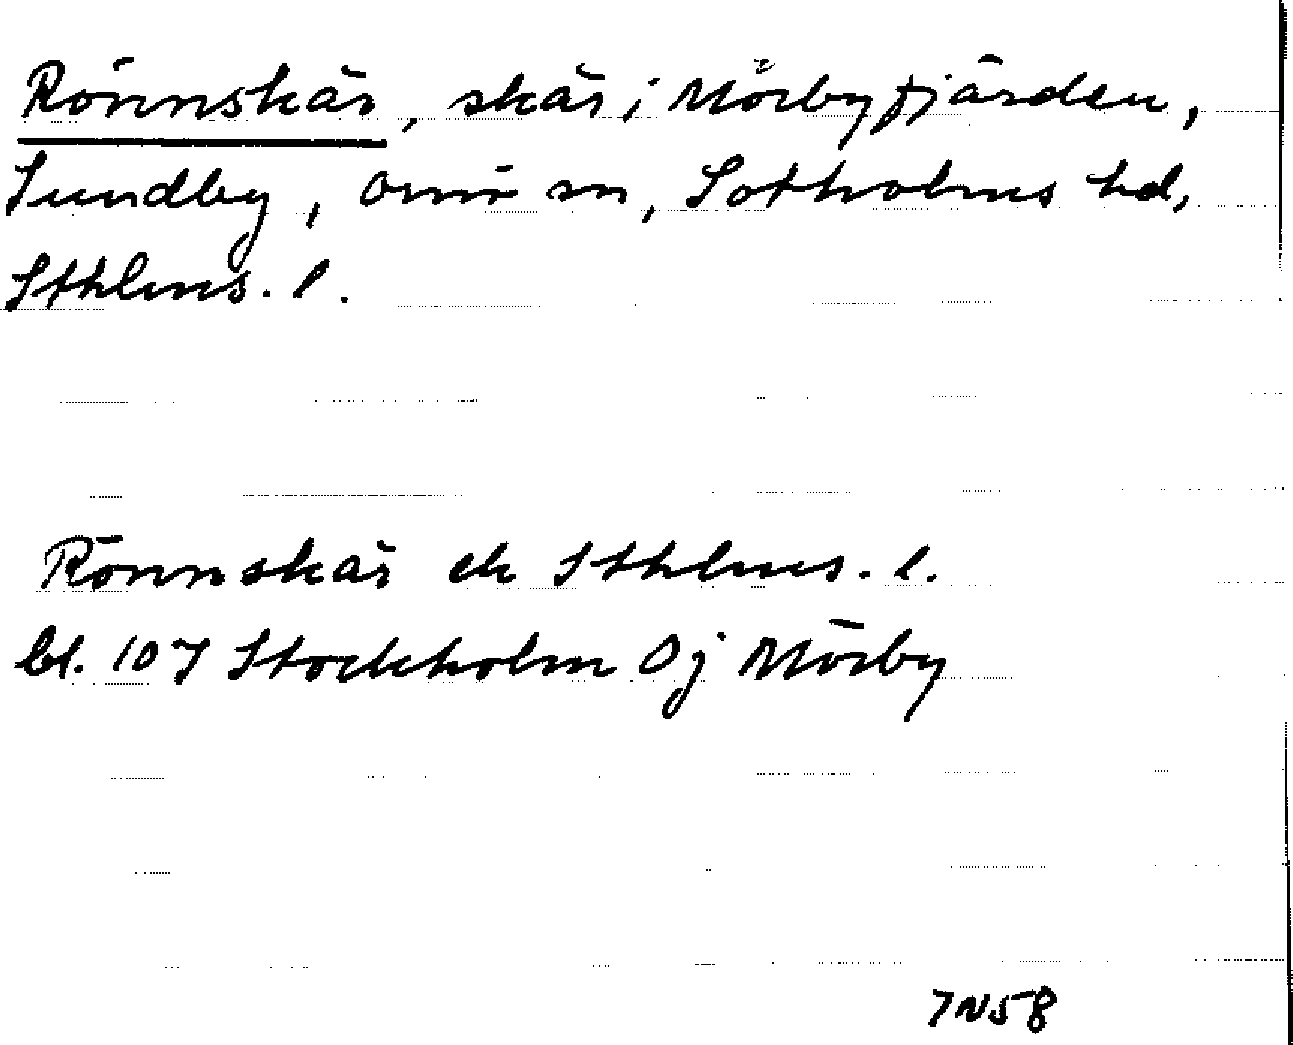 Rönnskär, skär i Mörbyfjärden,
Sundby, Ornö sn, Sotholms hd,
Sthlms. l.
Rönnskär ek Sthlms. l.
bl. 107 Stockholm Oj Mörby
7N58